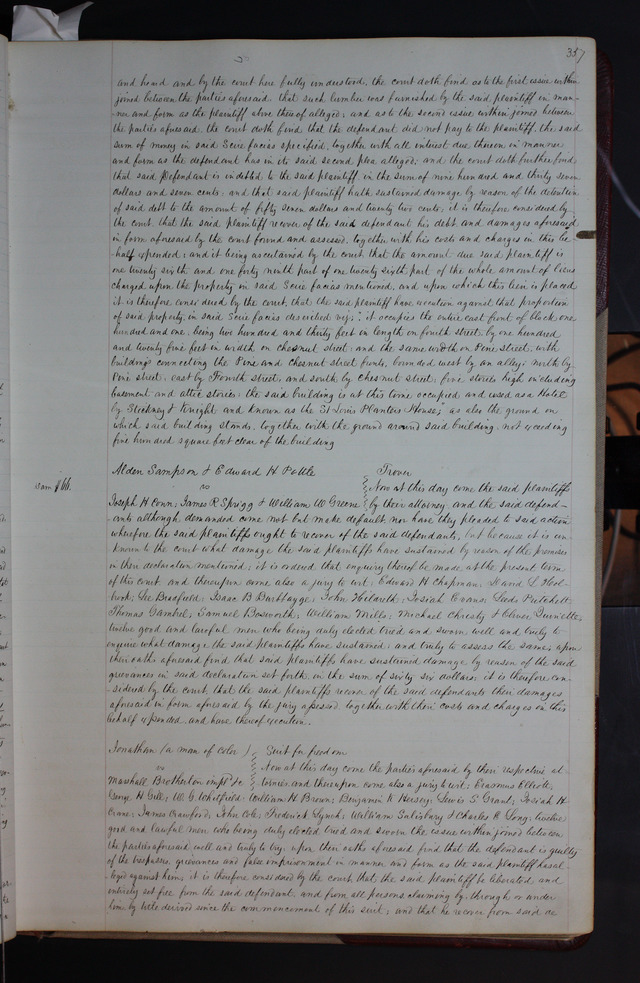 357
and heard and by the court here fully understood, the court doth find as to the first issue within
joined between the parties aforesaid, that such lumber was furnished by the said plaintiff in man-
ner and form as the plaintiff above thereof alleged; and as to the second issue within joined between
the parties aforesaid, the court doth find that the defendant did not pay to the plaintiff, the said
sum of money in said Scire facias specified, together with all interest due thereon in manner
and form as the defendant has in its said second plea alleged; and the court doth further find,
that said Defendant is indebted to the said plaintiff in the sum of nine hundred and thirty seven
dollars and seven cents, and that said plaintiff hath sustained damage by reason of the detention
of said debt to the amount of fifty seven dollars and twenty two cents, it is therefore considered by
the court that the said plaintiff recover of the said defendant his debt and damages aforesaid
in form aforesaid by the court found and assessed, together with his costs and charges in this be-
half expended; and it being ascertained by the court that the amount due said plaintiff is
one twenty sixth and one forty ninth part of one twenty sixth part of the whole amount of liens
charged upon the property in said Scire facias mentioned, and upon which this lien is placed
it is therefore considered by the court, that the said plaintiff have execution against that proportion
of said property in said Scire facias described viz; it occupies the entire east front of block one
hundred and one; being two hundred and thirty feet in length on fourth street, by one hundred
and twenty five feet in width on chesnut street, and the same width on Pine street, with
buildings connecting the Pine and chesnut street fronts, bounded west by an alley; north by
Pine street, east by Fourth street, and south by Chesnut street, five stories high including
basement and attic stories; the said building is at this time occupied and used as a Hotel
by Stickney & Knight and known as the St Louis Planters House; as also the ground on
which said building stands, together with the ground around said building, not exceeding
five hundred square feet clear of the building
Alden Sampson & Edward H Pottle
Trover
vs
Now at this day come the said plaintiffs
Dam $66.
Joseph H Conn, James R Sprigg & William W Greene
by their attorney, and the said defend-
ants although demanded come not but make default, nor have they pleaded to said action
wherefore the said plaintiffs ought to recover of the said defendants, but because it is un-
known to the court what damage the said plaintiffs have sustained by reason of the premises
in their declaration mentioned; it is ordered that enquiry thereof be made, at the present term
of this court, and thereupon come also a jury to wit: Edward H Chapman, David L Hol-
brook, Geo Bradfield, Isaac B Burbbayge, John Hildreth, Josiah Evans,
Thomas Gambel, Samuel Bosworth, William Mills, Michael Christy & Oliver Quinette,
twelve good and lawful men who being duly elected tried and sworn, well and truly to
enquire what damage the said plaintiffs have sustained, and truly to assess the same, upon
their oaths aforesaid find that said plaintiffs have sustained damage by reason of the said
grievances in said declaration set forth, in the sum of sixty six dollars; it is therefore con-
sidered by the court, that the said plaintiffs recover of the said defendants their damages
aforesaid in form aforesaid by the jury assessed, together with their costs and charges in this
behalf expended, and have thereof execution.
Jonathan (a man of color)
Suit for freedom
vs
Now at this day come the parties aforesaid by their respective at-
Marshall Brotherton impl'd &c
tornies, and thereupon come also a jury to wit; Erasmus Elliott,
George H Gill, W. G. Whitfield, William H Brown, Benjamin K Hersey, Lewis S Grant, Josiah H
Crane, James Crawford, John Cole, Frederick Lynch, William Salisbury & Charles R Long, twelve
good and lawful men who being duly elected tried and sworn the issue within joined between
the parties aforesaid well and truly to try, upon their oaths aforesaid, find that the defendant is guilty
of the trespasses, grievances and false imprisonment in manner and form as the said plaintiff has al-
leged against him; it is therefore considered by the court, that the said plaintiff be liberated and
entirely set free from the said defendant, and from all persons claiming by, through or under
him by title derived since the commencement of this suit; and that he recover from said de